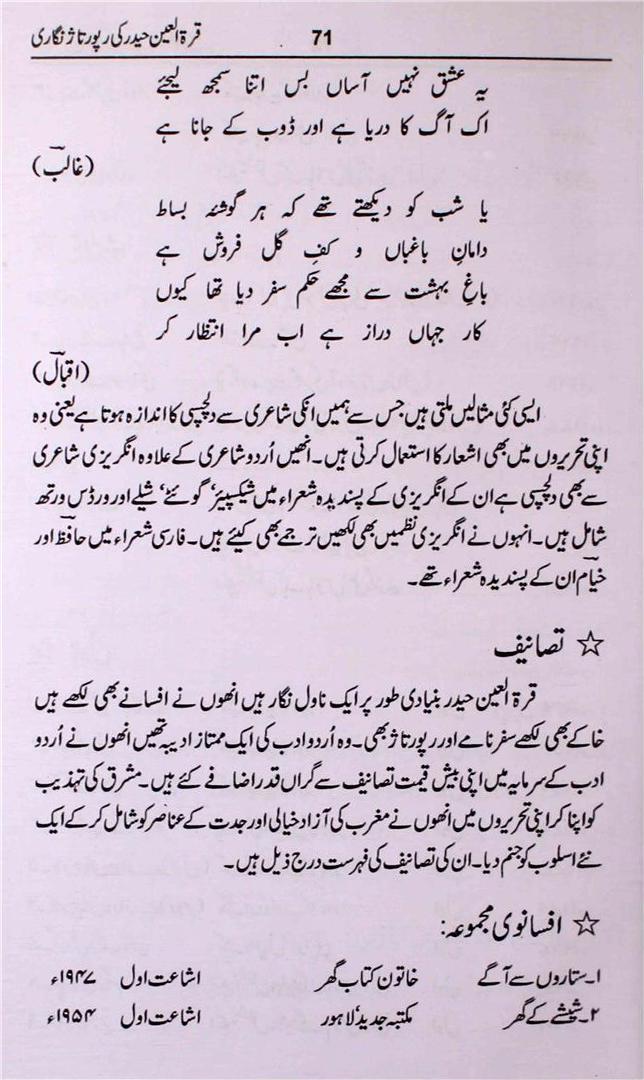 قرۃ العین حیدر کی رپورتاژ نگاری 71
یہ عشق نہیں آساں بس اتنا سمجھ لیجئے
اک آگ کا دریا ہے اور ڈوب کے جانا ہے
(غالبؔ)
یا شب کو دیکھتے تھے کہ ہر گوشئہ بساط
دامانِ باغباں و کفِ گل فروش ہے
باغِ بہشت سے مجھے حکم سفر دیا تھا کیوں
کار جہاں دراز ہے اب مرا انتظار کر
(اقبالؔ)
ایسی کئی مثالیں ملتی ہیں جس سے ہمیں انکی شاعری سے دلچسپی کا اندازہ ہوتا ہے یعنی وہ
اپنی تحریروں میں بھی اشعار کا استعمال کرتی ہیں۔ انھیں اُردو شاعری کے علاوہ انگریزی شاعری
سے بھی دلچسپی ہے ان کے انگریزی کے پسندیدہ شعراء میں شیکسپیئر‘ گوئٹے‘ شیلے اور ورڈس ورتھ
شامل ہیں۔ انہوں نے انگریزی نظمیں بھی لکھیں ترجمے بھی کیئے ہیں۔ فارسی شعراء میں حافظؔ اور
خیامؔ ان کے پسندیدہ شعراء تھے۔
☆ تصانیف
قرۃ العین حیدر بنیادی طور پر ایک ناول نگار ہیں انھوں نے افسانے بھی لکھے ہیں
خاکے بھی لکھے سفرنامے اور رپورتاژ بھی۔ وہ اُردو ادب کی ایک ممتاز ادیبہ تھیں انھوں نے اُردو
ادب کے سرمایہ میں اپنی بیش قیمت تصانیف سے گراں قدر اضافے کئے ہیں۔ مشرق کی تہذیب
کو اپنا کر اپنی تحریروں میں انھوں نے مغرب کی آزاد خیالی اور جدت کے عناصر کو شامل کر کے ایک
نئے اسلوب کو جنم دیا۔ ان کی تصانیف کی فہرست درج ذیل ہیں۔
☆ افسانوی مجموعہ:
۱۔ستاروں سے آگے خاتون کتاب گھر اشاعت اول ۱۹۴۷ء
۲۔شیشے کے گھر مکتبہ جدید‘ لاہور اشاعت اول ۱۹۵۴ء